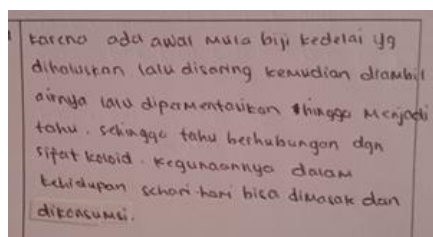 karena ada awal mula biji kedelai yg
dihaluskan lalu disaring kemudian diambil
airnya lalu dipermentasikan hingga menjadi
tahu. sehingga tahu berhubungan dgn
sifat koloid. kegunaannya dalam
kehidupan sehari-hari bisa dimasak dan
dikonsumsi.